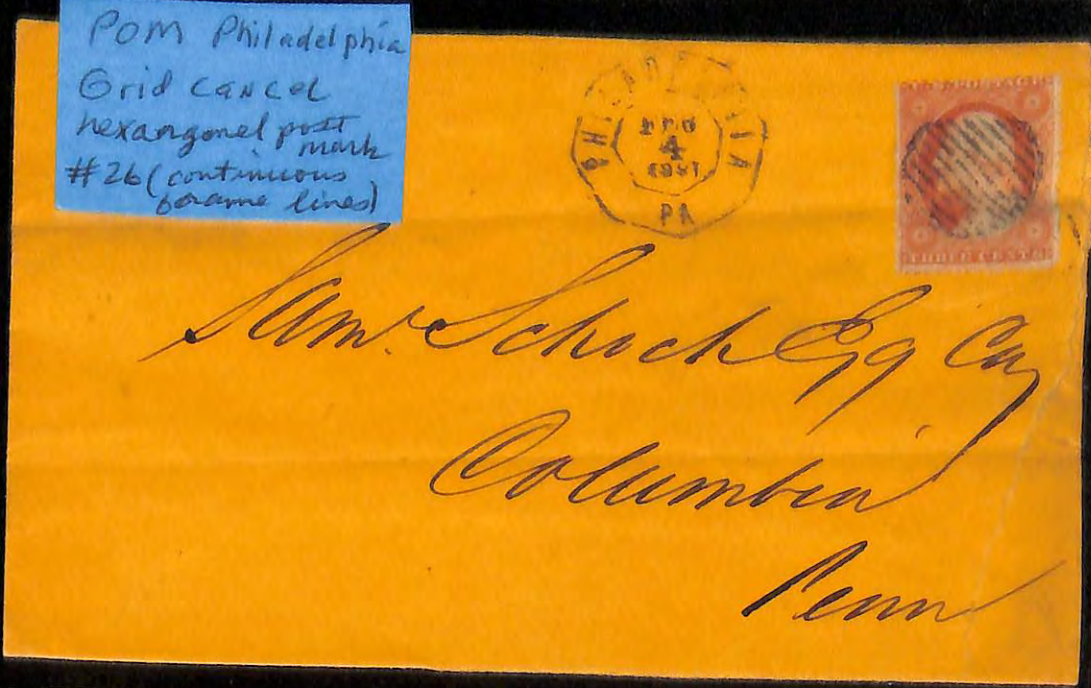 POM Philadelphia
Grid cancel
hexangonel post
mark
#26 (continuous
frame lines)
PHILADELPHIA
4
PA
THREE CENTS
Sam. Schoch Esq
Columbia
Penn